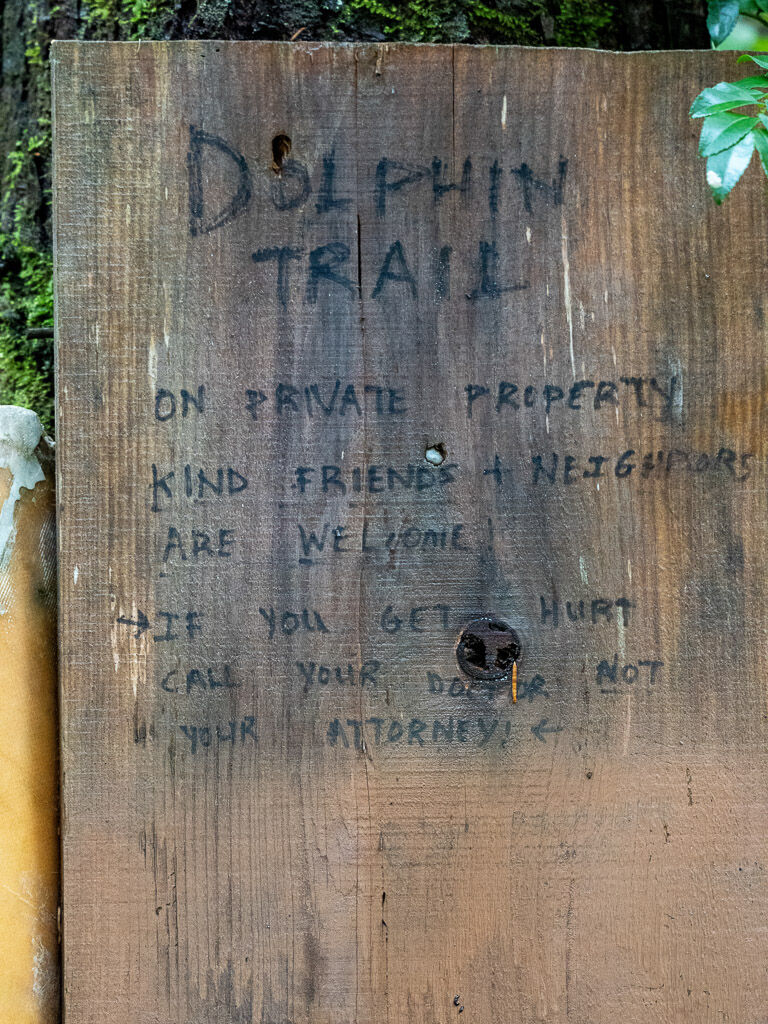 DOLPHIN
TRAIL
ON PRIVATE PROPERTY
KIND FRIENDS + NEIGHBORS
ARE WELCOME!
→ IF YOU GET HURT
CALL YOUR DOCTOR NOT
YOUR ATTORNEY! ←